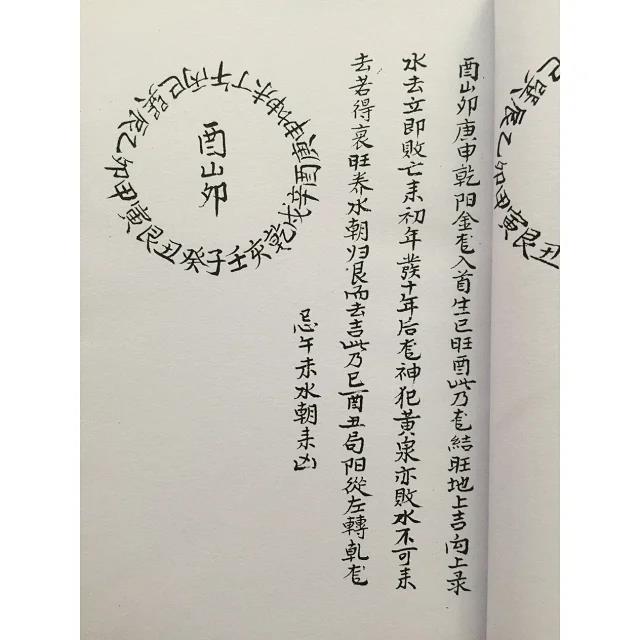 酉山卯庚申乾阳金龙入首生巳旺酉此乃龙結旺地上吉向上录
水去立即敗亡耒初年發十年后龙神犯黃泉亦敗水不可耒
去若得衰旺养水朝归艮而去吉此乃巳酉丑局阳從左轉乹龙
忌午未水朝耒凶
酉山卯
壬子癸丑艮寅甲卯乙辰巽巳丙午丁未坤申庚酉辛戌乾亥
巳巽辰乙卯甲寅艮丑